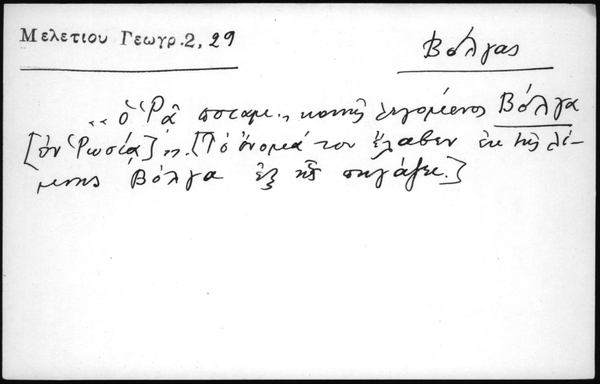 Μελετίου Γεωγρ. 2, 29
Βόλγας
„ὁ Ῥᾶ ποταμ., κοινῶς λεγόμενος Βόλγα
[ἐν Ῥωσίᾳ]". [Τὸ ὄνομά του ἔλαβεν ἐκ τῆς λί-
μνης Βόλγα ἐξ ἧς πηγάζει.]